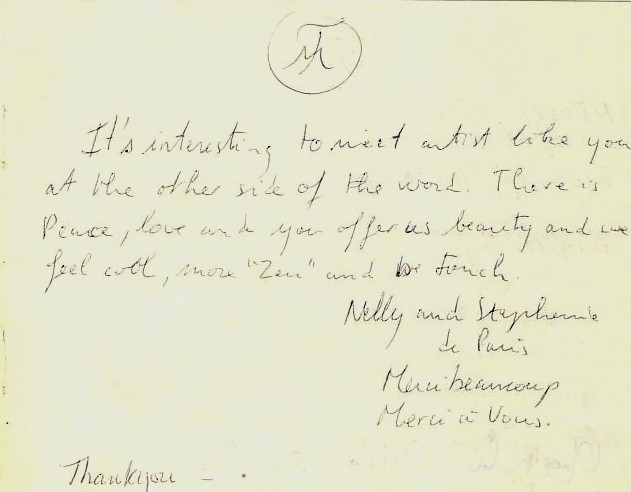 It's interesting to meet artist like you
at the other side of the word. There is
Peace, love and you offer us beauty and we
feel cool, more "Zen" and touch.
Nelly and Stephanie
de Paris
Merci beaucoup
Merci à Vous.
Thank you -